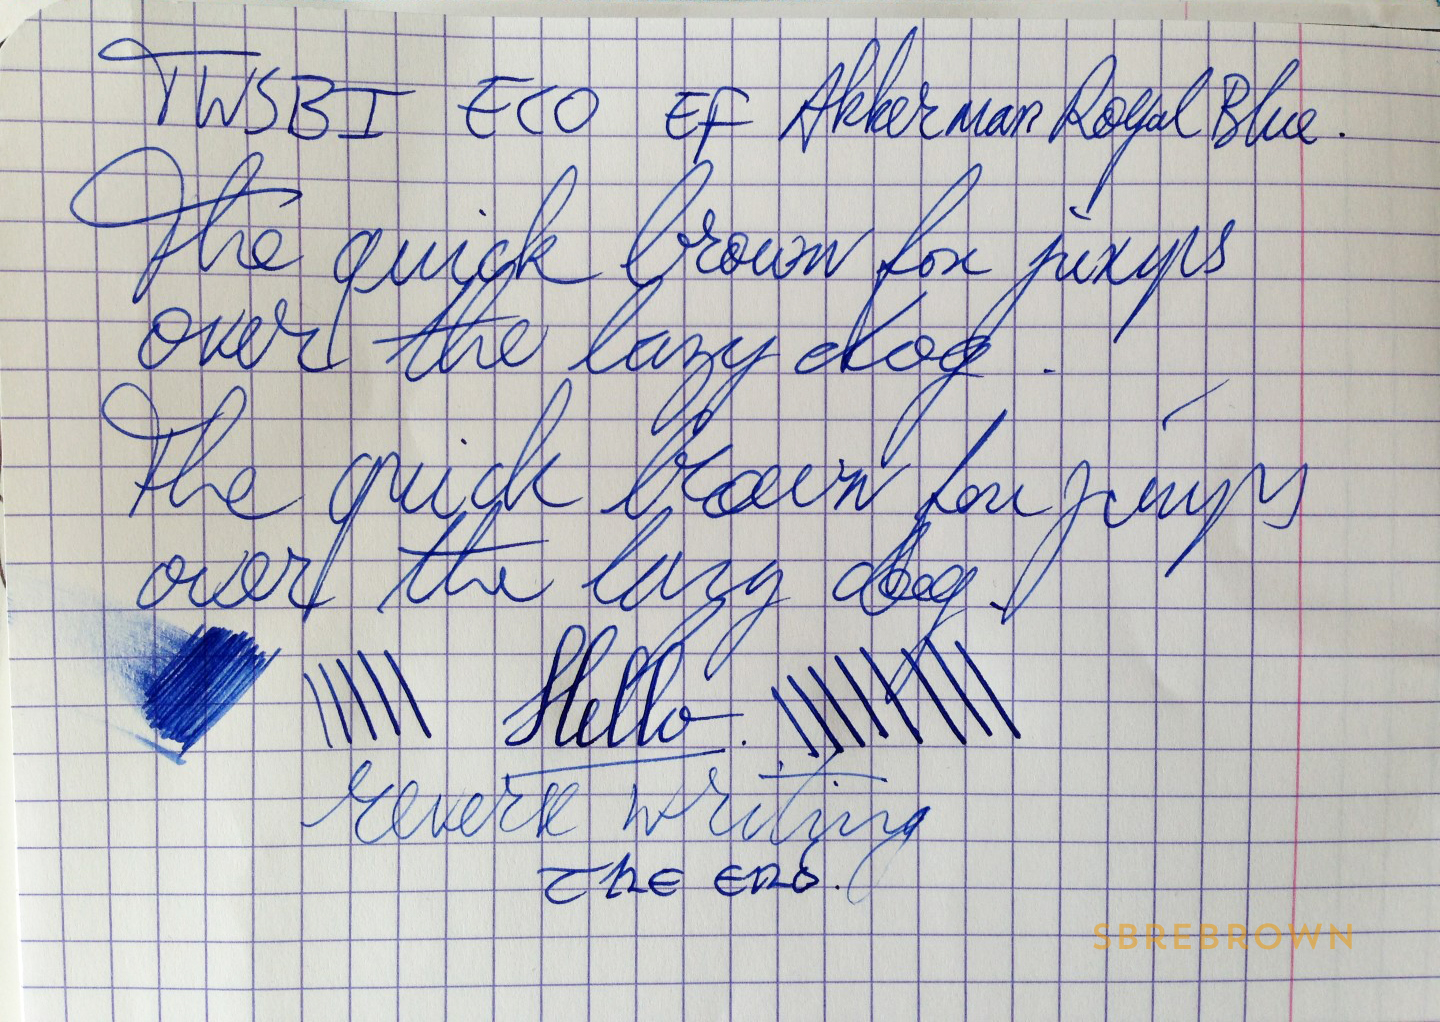 TWSBI ECO EF Akkerman Royal Blue.
The quick brown fox jumps
over the lazy dog.
The quick brown fox jumps
over the lazy dog.
Hello.
reverse writing
THE END.
SBREBROWN